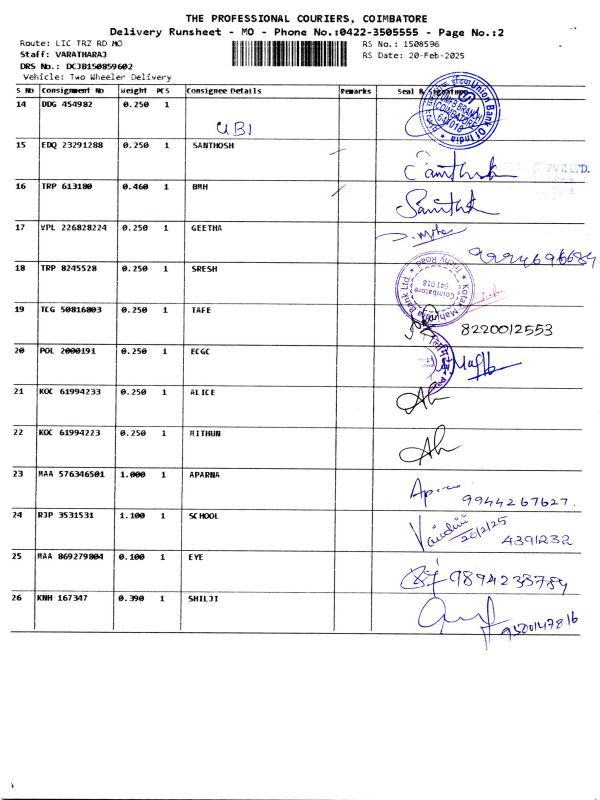 THE PROFESSIONAL COURIERS, COIMBATORE
Delivery Runsheet - MO - Phone No.:0422-3505555 - Page No.:2
Route: LIC TRZ RD MO RS No.: 1508596
Staff: VARATHARAJ RS Date: 20-Feb-2025
DRS No.: DCJB150859602
Vehicle: Two Wheeler Delivery
S No Consignment No Weight PCS Consignee Details Remarks Seal & Signature
14 DDG 454982 0.250 1
UBI
Union Bank Of India
COIMBATORE
641018
15 EDQ 23291288 0.250 1 SANTHOSH
Santhosh
PVT. LTD.
16 TRP 613180 0.460 1 BMH
Santhosh
17 VPL 226828224 0.250 1 GEETHA
18 TRP 8245528 0.250 1 SRESH
Kotak Mahindra Bank Ltd
Trichy Road
Coimbatore
641 018
19 TCG 50816803 0.250 1 TAFE
8220012553
20 POL 2000191 0.250 1 ECGC
21 KOC 61994233 0.250 1 ALICE
22 KOC 61994223 0.250 1 MITHUN
23 MAA 576346501 1.000 1 APARNA
9944267627.
24 RJP 3531531 1.100 1 SCHOOL
20/2/25
4391232
25 MAA 869279804 0.100 1 EYE
9894238784
26 KNH 167347 0.390 1 SHILJI